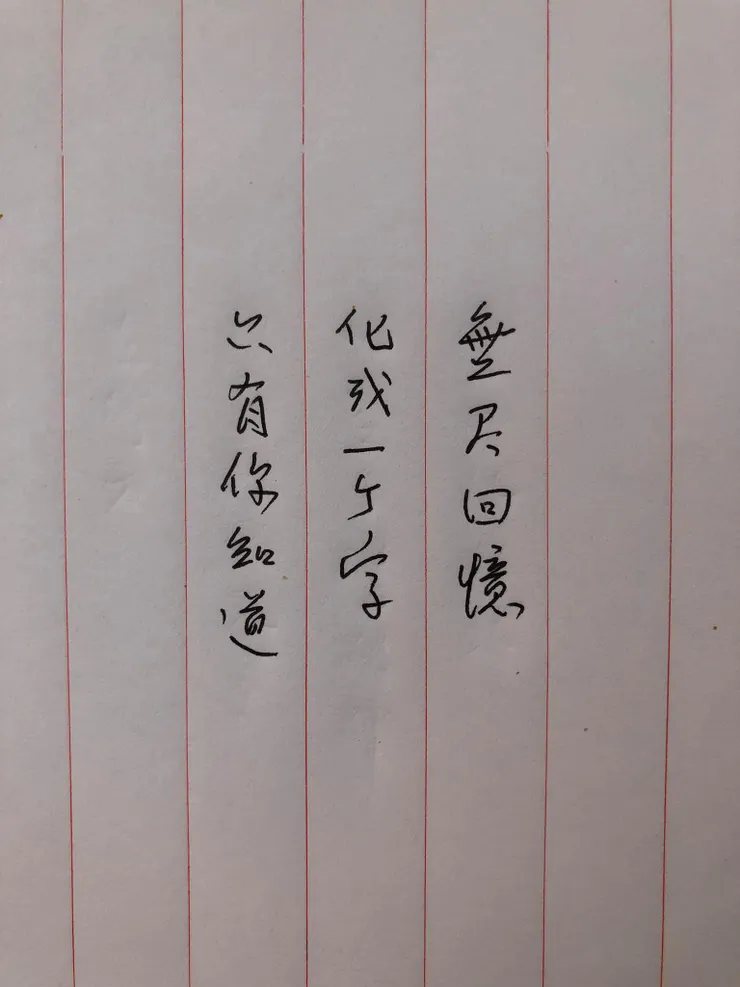 無尽回憶
化成一个字
只有你知道